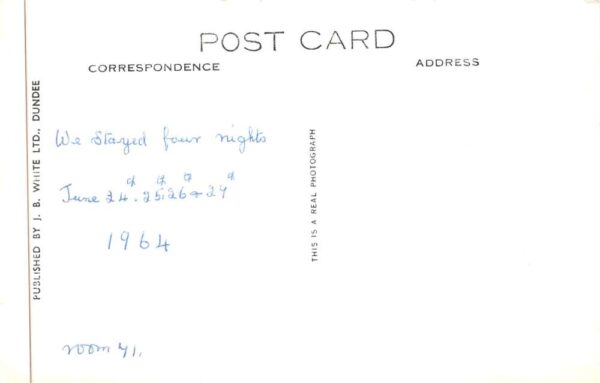 POST CARD
CORRESPONDENCE
ADDRESS
PUBLISHED BY J. B. WHITE LTD., DUNDEE
THIS IS A REAL PHOTOGRAPH
We stayed four nights
June 24. 25. 26 +
1964
room 41.